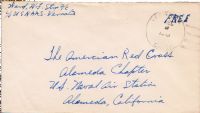 Ward, H.S. Stm 2/c
U.S.N.A.A.S. Kernata
Free
The Amercian Red Cross
Alameda Chapter
U.S. Naval Air Station
Alameda, California